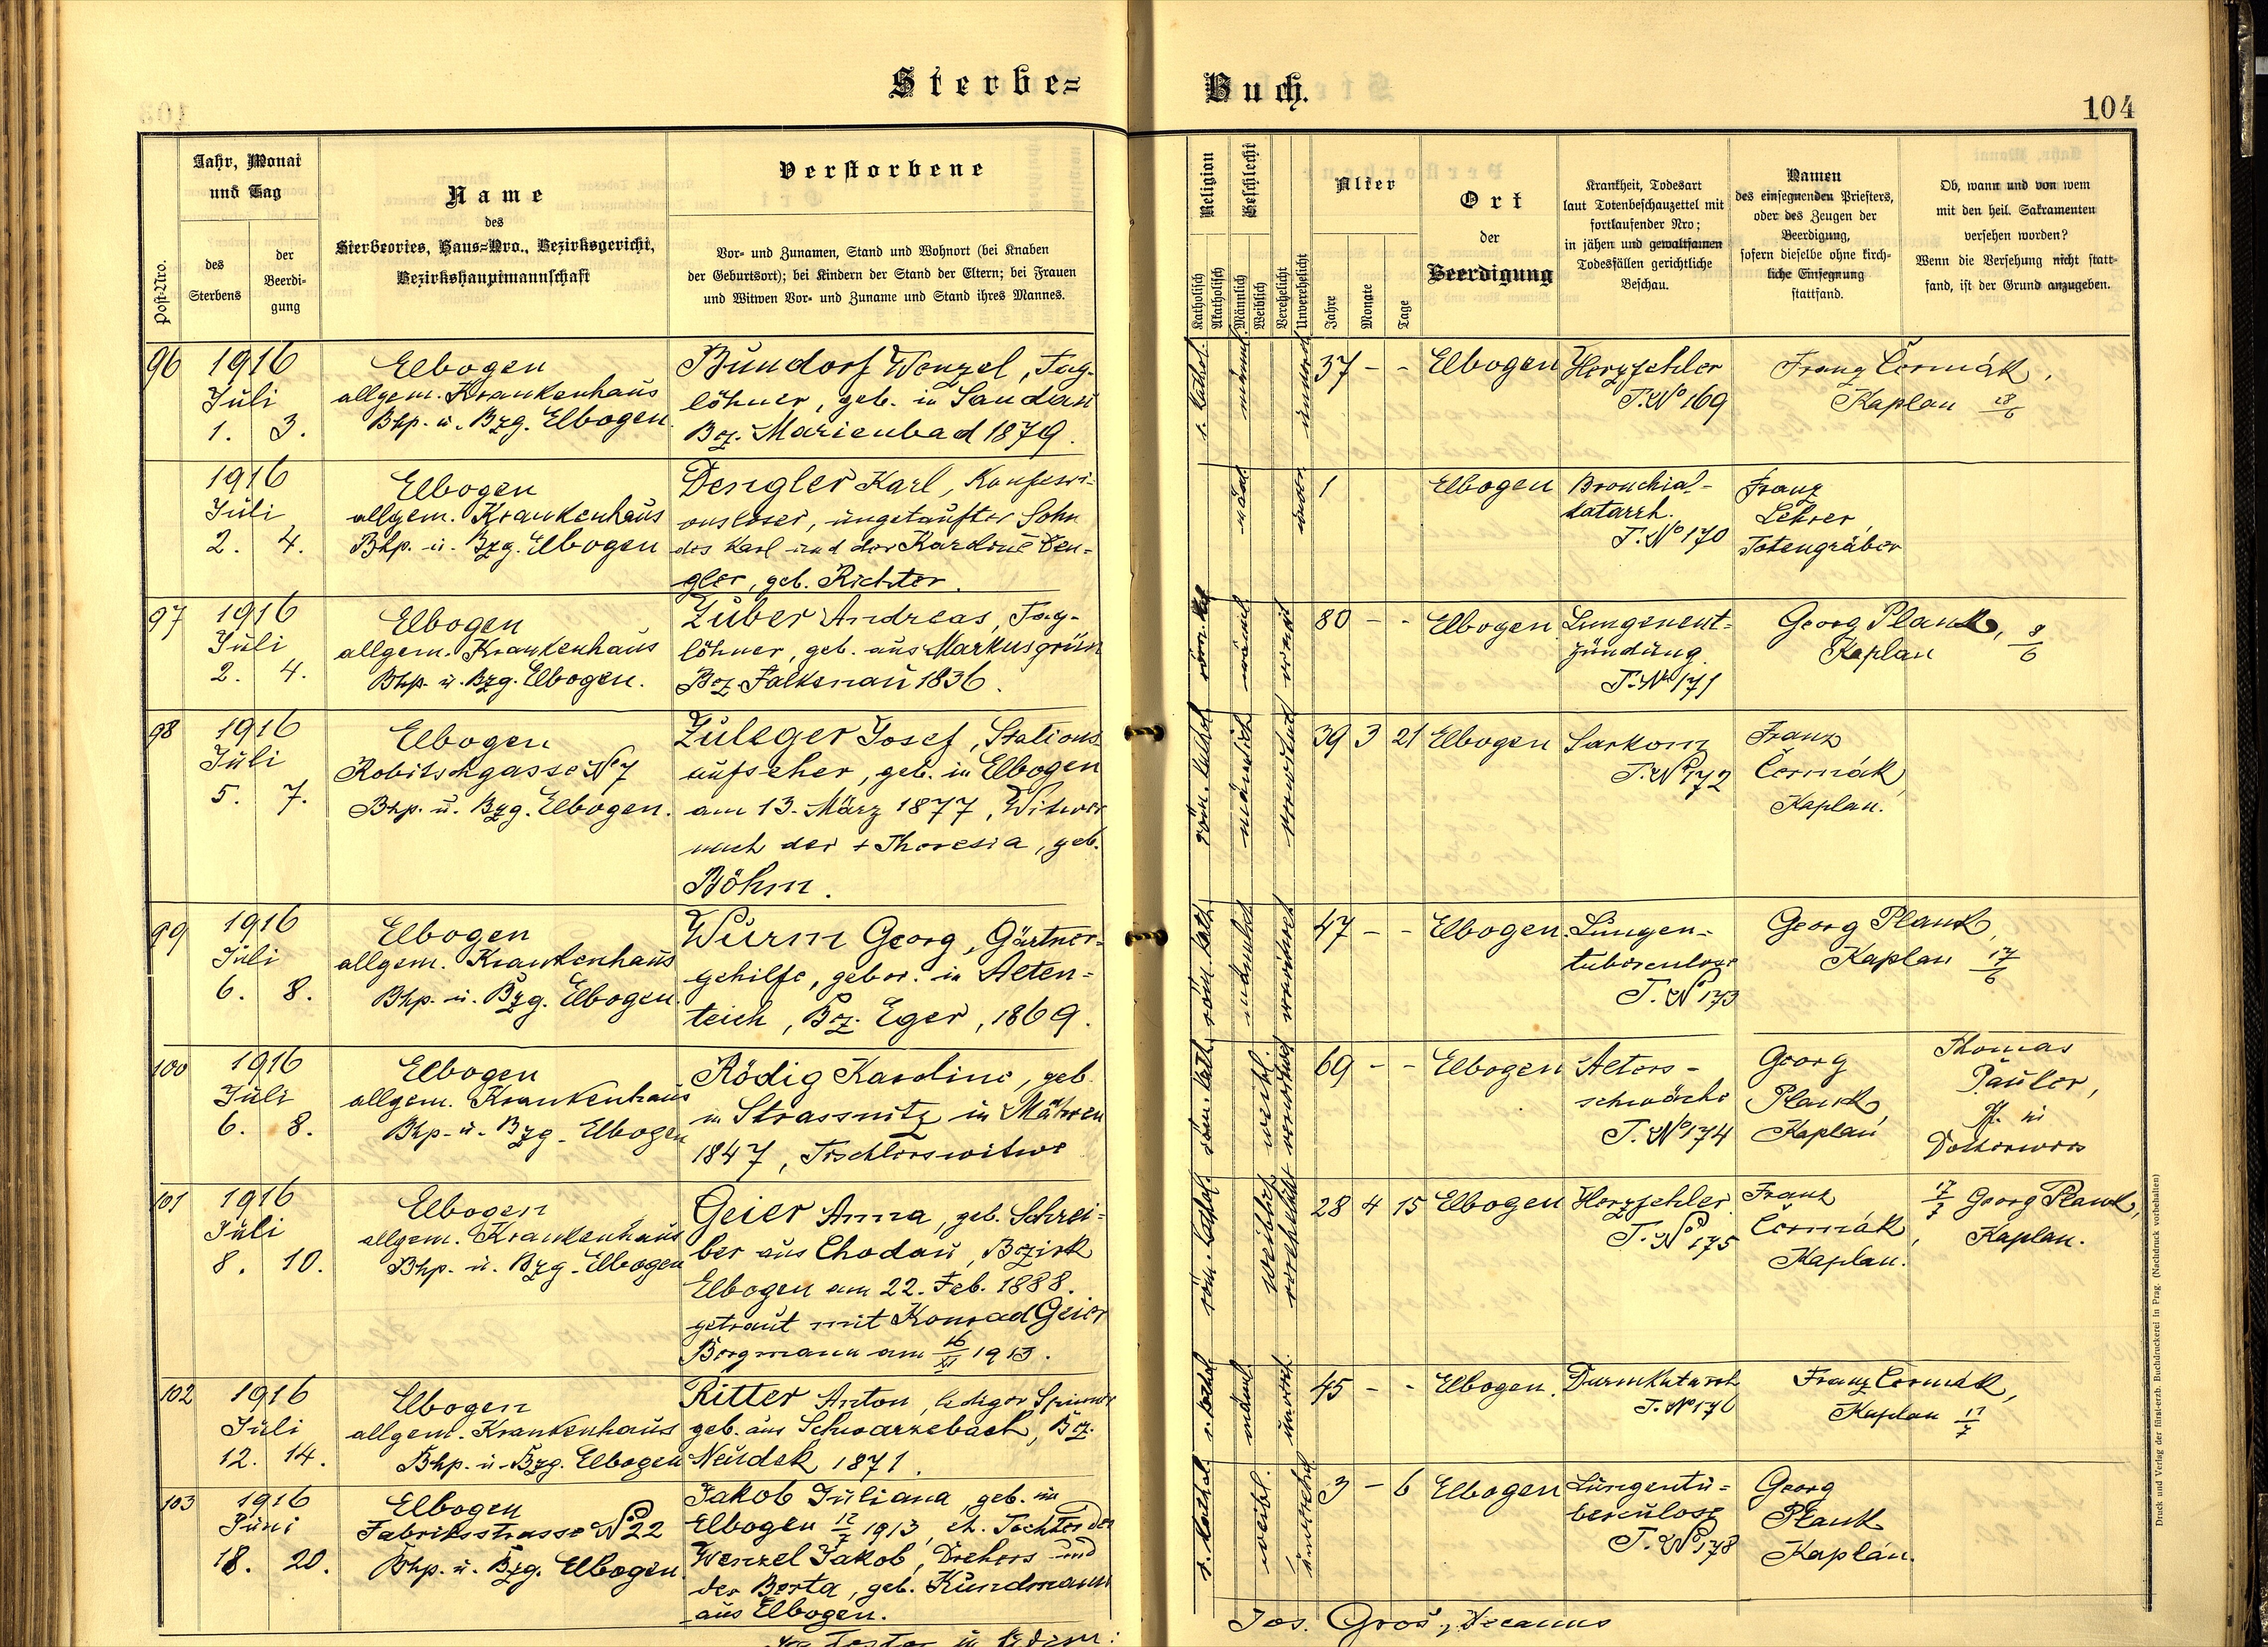 Sterbe=
Buch.
104
Post-Nro.
Jahr, Monat
und Tag
des
Sterbens
der
Beerdi-
gung
Name
des
Sterbeortes, Haus=Nro., Bezirksgericht,
Bezirkshauptmannschaft
Verstorbene
Vor- und Zunamen, Stand und Wohnort (bei Knaben
der Geburtsort); bei Kindern der Stand der Eltern; bei Frauen
und Witwen Vor- und Zuname und Stand ihres Mannes.
Religion
Katholisch
Akatholisch
Geschlecht
Männlich
Weiblich
Verehelicht
Unverehelicht
Alter
Jahre
Monate
Tage
Ort
der
Beerdigung
Krankheit, Todesart
laut Totenbeschauzettel mit
fortlaufender Nro;
in jähen und gewaltsamen
Todesfällen gerichtliche
Beschau.
Namen
des einsegnenden Priesters,
oder des Zeugen der
Beerdigung,
sofern dieselbe ohne kirch-
liche Einsegnung
stattfand.
Ob, wann und von wem
mit den heil. Sakramenten
versehen worden?
Wenn die Versehung nicht statt-
fand, ist der Grund anzugeben.
96
1916
Juli
1. 3.
Elbogen
allgem. Krankenhaus
Bhp. u. Bzg. Elbogen
Bundorf Wenzel, Tag-
löhner, geb. in Sandau
Bz. Marienbad 1879.
r. kathol.
männl.
37 - -
Elbogen
Herzfehler
T. No 169
Franz Čermák,
Kaplan 28/6
1916
Juli
2. 4.
Elbogen
allgem. Krankenhaus
Bhp. u. Bzg. Elbogen
Dengler Karl, Konfessi-
onsloser, ungetaufter Sohn
des Karl und der Karoline Den-
gler, geb. Richter.
1
Elbogen
Bronchial-
katarrh.
T. No 170
Franz
Lehrer,
Totengräber
97
1916
Juli
2. 4.
Elbogen
allgem. Krankenhaus
Bhp. u. Bzg. Elbogen.
Zuber Andreas, Tag-
löhner, geb. aus Markusgrün
Bz. Falkenau 1836.
80 - -
Elbogen
Lungenent-
zündung.
T. No 171
Georg Plank,
Kaplan 8/6
98
1916
Juli
5. 7.
Elbogen
Robitschgasse No 7
Bhp. u. Bzg. Elbogen.
Zuleger Josef, Stations-
aufseher, geb. in Elbogen
am 13. März 1877, Witwer
nach der + Theresia, geb.
Böhm.
röm. kathol.
männlich
verwitwet
39 3 21
Elbogen
Sarkom
T. No 172
Franz
Čermák,
Kaplan.
99
1916
Juli
6. 8.
Elbogen
allgem. Krankenhaus
Bhp. u. Bzg. Elbogen.
Wurm Georg, Gärtner-
gehilfe, gebor. in Alten-
teich, Bz. Eger, 1869.
röm. kath.
männlich
47 - -
Elbogen.
Lungen-
tuberculose
T. No 173
Georg Plank,
Kaplan 17/6
100
1916
Juli
6. 8.
Elbogen
allgem. Krankenhaus
Bhp. u. Bzg. Elbogen
Rödig Karoline, geb.
in Strassnitz in Mähren
1847, Tischlerswitwe
röm. kath.
weibl.
verwitwet
69 - -
Elbogen
Alters-
schwäche
T. No 174
Georg
Plank,
Kaplan
Thomas
Pauler,
101
1916
Juli
8. 10.
Elbogen
allgem. Krankenhaus
Bhp. u. Bzg. Elbogen
Geier Anna, geb. Schrei-
ber aus Chodau, Bezirk
Elbogen am 22. Feb. 1888.
getraut mit Konrad Geier
Bergmann am 16/XI 1913.
röm. kathol.
weiblich
verehelicht
28 4 15
Elbogen
Herzfehler.
T. No 175
Franz
Čermák,
Kaplan.
17/7 Georg Plank,
Kaplan.
102
1916
Juli
12. 14.
Elbogen
allgem. Krankenhaus
Bhp. u. Bzg. Elbogen
Ritter Anton, lediger
geb. aus Schwarzebach, Bz.
Neudek 1871.
r. kathol.
45 - -
Elbogen.
Darmkatarrh
T. No 176
Franz Čermák,
Kaplan 12/7
103
1916
Juni
18. 20.
Elbogen
Fabriksstrasse No 22
Bhp. u. Bzg. Elbogen.
Jakob Juliana, geb. in
Elbogen 12/7 1913, eh. Tochter des
Wenzel Jakob, Drehers und
der Berta, geb. Kundmann
aus Elbogen.
r. kathol.
weibl.
3 - 6
Elbogen
Lungentu-
berculose
T. No 178
Georg
Plank
Kaplan.
Jos. Groß, Decanus
Druck und Verlag der fürst-erzb. Buchdruckerei in Prag. (Nachdruck vorbehalten)